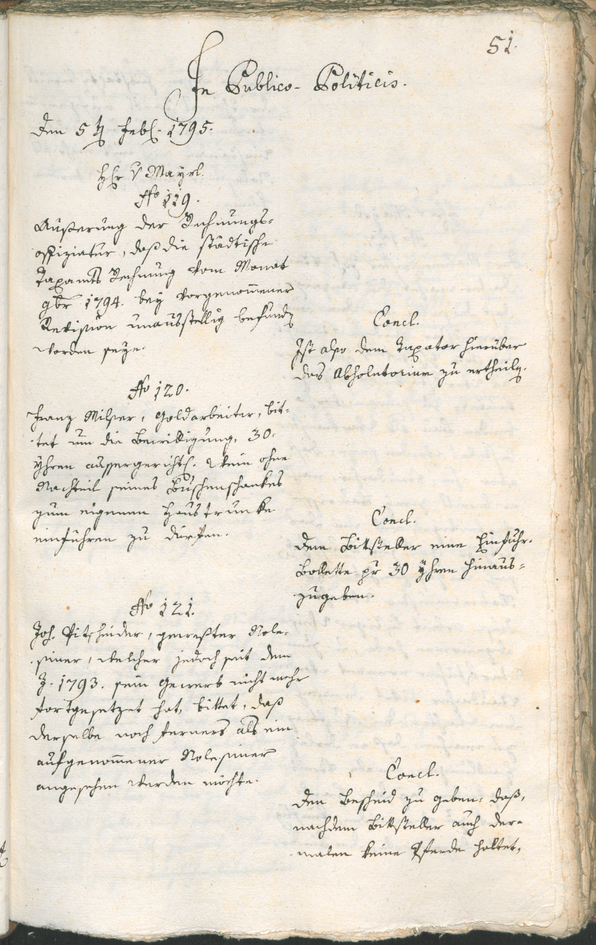 51.
In Publico-Politicis.
Den 5th Feb. 1795.
Hr v Mayrl.
No 119.
Äußerung der Rechnungs-
offiziatur, daß die städtische
Taxamts Rechnung vom Monat
9br 1794. bey vorgenommener
Revision unausstellig befunden
worden seye.
Concl.
Ist also dem Taxator hierüber
das Absolutorium zu ertheilen.
No 120.
Franz Milser, Goldarbeiter, bit-
tet um die Bewilligung, 30.
Yhren aussergerichtl. Wein ohne
Nachteil seines Buschenschankes
zum eigenen Haustrunke
einführen zu dürfen.
Concl.
Dem Bittsteller eine Einfuhr-
Bollette pr 30 Yhren hinaus-
zugeben.
No 121.
Joh. Pitscheider, gewester Nole-
siner, welcher jedoch seit dem
J. 1793. sein Gewerb nicht mehr
fortgesetzet hat, bittet, daß
derselbe noch ferners als ein
aufgenommener Nolesiner
angesehen werden möchte.
Concl.
Den Bescheid zu geben, daß,
nachdem Bittsteller auch der-
malen keine Pferde haltet,